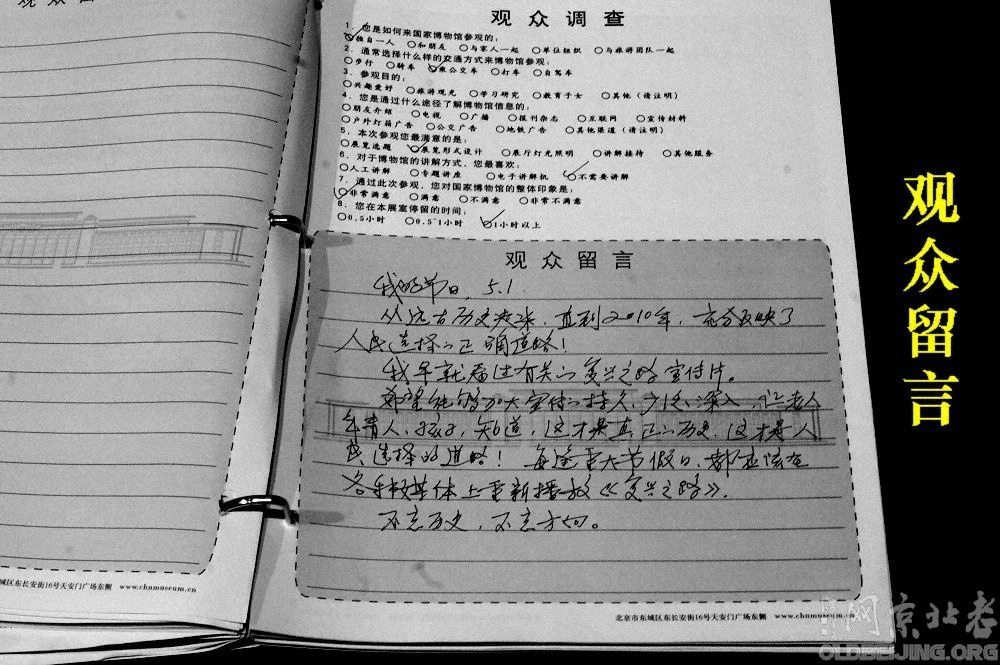 观众留
观众调查
1、您是如何来国家博物馆参观的：
独自一人 和朋友 与家人一起 单位组织 与旅游团队一起
2、通常选择什么样的交通方式来博物馆参观：
步行 骑车 乘公交车 打车 自驾车
3、参观目的：
兴趣爱好 旅游观光 学习研究 教育子女 其他（请注明）
4、您是通过什么途径了解博物馆信息的：
朋友介绍 电视 广播 报刊杂志 互联网 宣传材料
户外灯箱广告 公交广告 地铁广告 其他渠道（请注明）
5、本次参观您最满意的是：
展览选题 展览形式设计 展厅灯光照明 讲解接待 其他服务
6、对于博物馆的讲解方式，您最喜欢：
人工讲解 专题讲座 电子讲解机 不需要讲解
7、通过此次参观，您对国家博物馆的整体印象是：
非常满意 满意 不满意 非常不满意
8、您在本展室停留的时间：
0.5小时 0.5~1小时 1小时以上
观众留言
我的节日，5.1.
从远古历史走来，直到2010年，充分反映了
人民选择的正确道路！
我早就看过有关的复兴之路宣传片。
希望能够加大宣传、持久、广泛、深入，让老人
年青人、孩子，知道，这才是真正的历史，这才是人
民选择的道路！每逢重大节假日，都应该在
各种媒体上重新播放《复兴之路》.
不忘历史，不忘方向。
城区东长安街16号天安门广场东侧 www.chnmuseum.cn
北京市东城区东长安街16号天安门广场东侧 www.chnmuseum.cn
观众留言
网京北老
OLDBEIJING.ORG